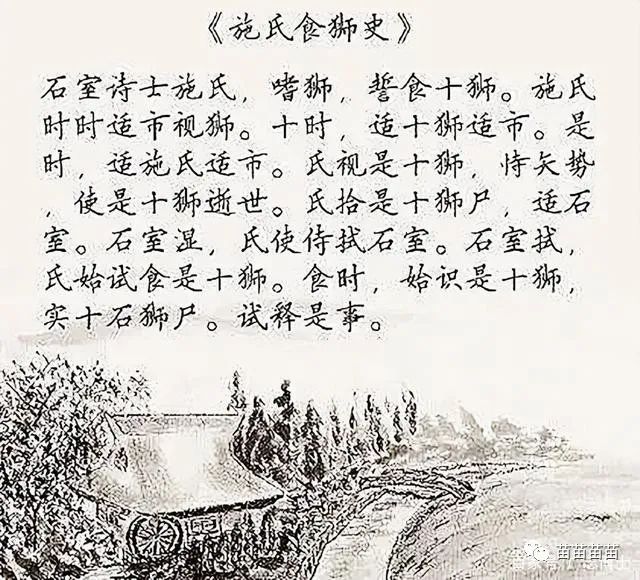 《施氏食狮史》
石室诗士施氏，嗜狮，誓食十狮。施氏
时时适市视狮。十时，适十狮适市。是
时，适施氏适市。氏视是十狮，恃矢势
，使是十狮逝世。氏拾是十狮尸，适石
室。石室湿，氏使侍拭石室。石室拭，
氏始试食是十狮。食时，始识是十狮，
实十石狮尸。试释是事。
苗苗苗苗